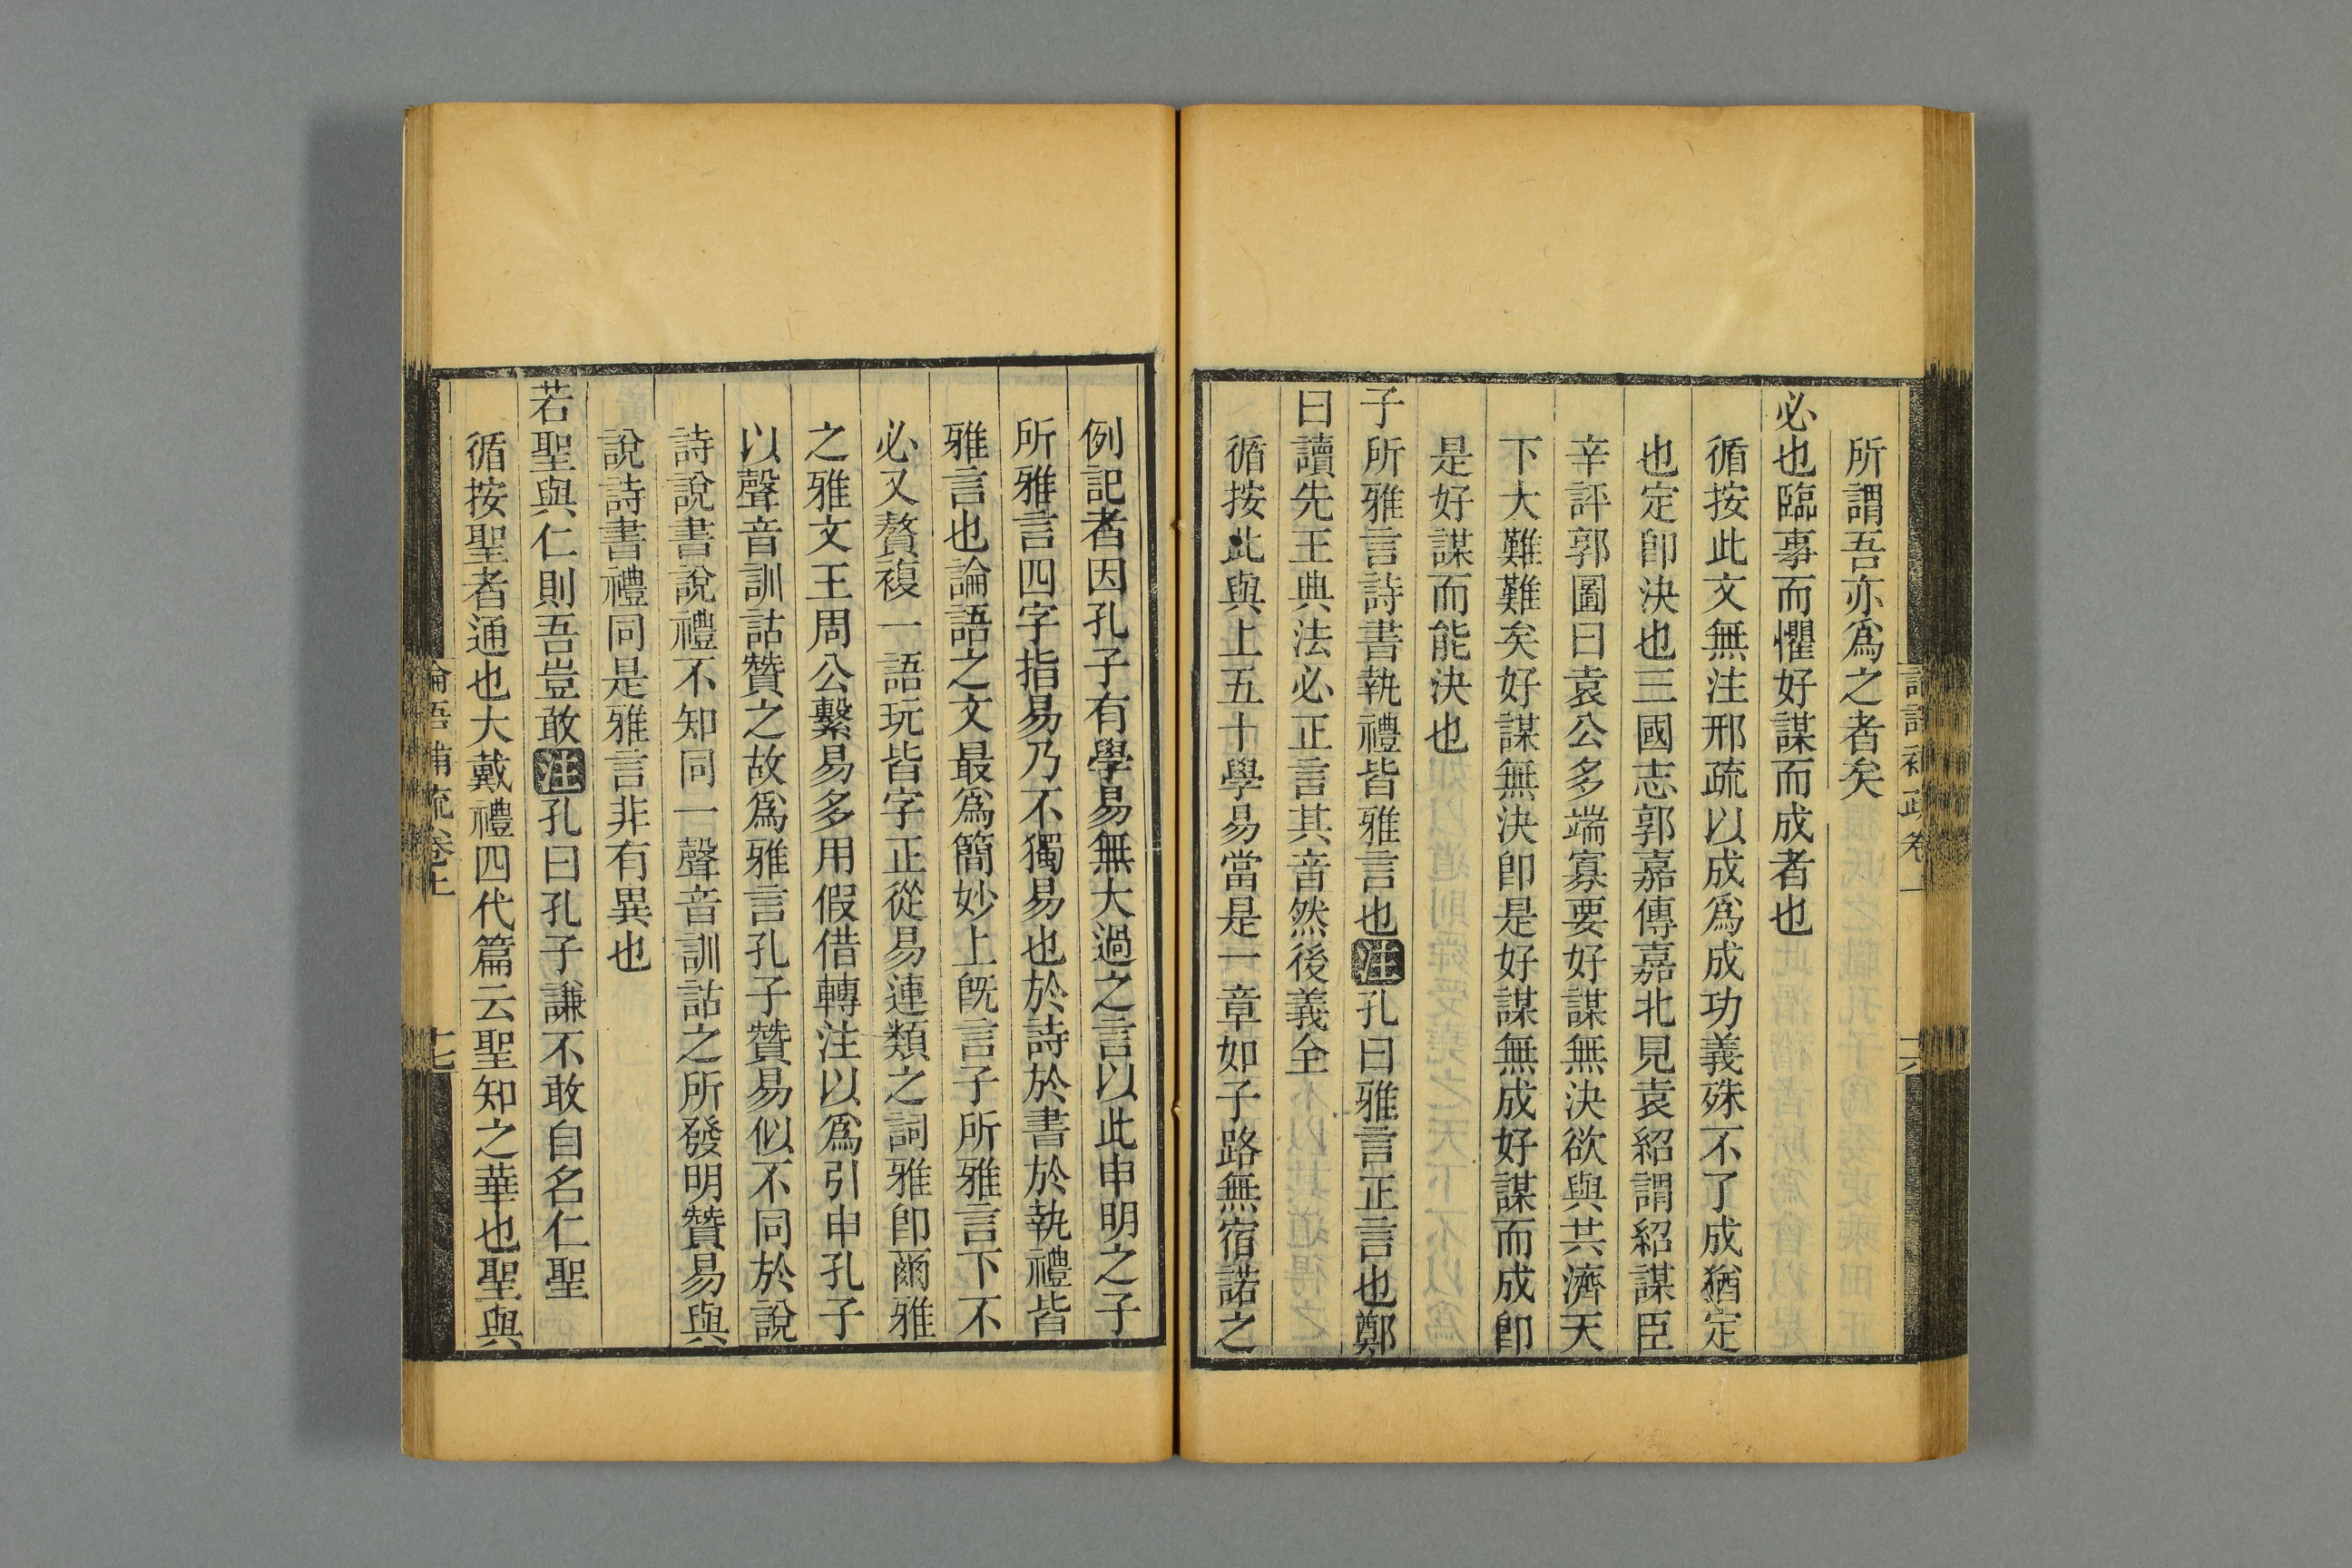 所謂吾亦爲之者矣
必也臨事而懼好謀而成者也
循按此文無注邢疏以成爲成功義殊不了成猶定
也定卽決也三國志郭嘉傳嘉北見袁紹謂紹謀臣
辛評郭圖曰袁公多端寡要好謀無決欲與共濟天
下大難難矣好謀無決卽是好謀無成好謀而成卽
是好謀而能決也
子所雅言詩書執禮皆雅言也注孔曰雅言正言也鄭
曰讀先王典法必正言其音然後義全
循按此與上五十學易當是一章如子路無宿諾之
例記者因孔子有學易無大過之言以此申明之子
所雅言四字指易乃不獨易也於詩於書於執禮皆
雅言也論語之文最爲簡妙上旣言子所雅言下不
必又贅複一語玩皆字正從易連類之詞雅卽爾雅
之雅文王周公繫易多用假借轉注以爲引申孔子
以聲音訓詁贊之故爲雅言孔子贊易似不同於說
詩說書說禮不知同一聲音訓詁之所發明贊易與
說詩書禮同是雅言非有異也
若聖與仁則吾豈敢注孔曰孔子謙不敢自名仁聖
循按聖者通也大戴禮四代篇云聖知之華也聖與
論語補疏卷上
十七